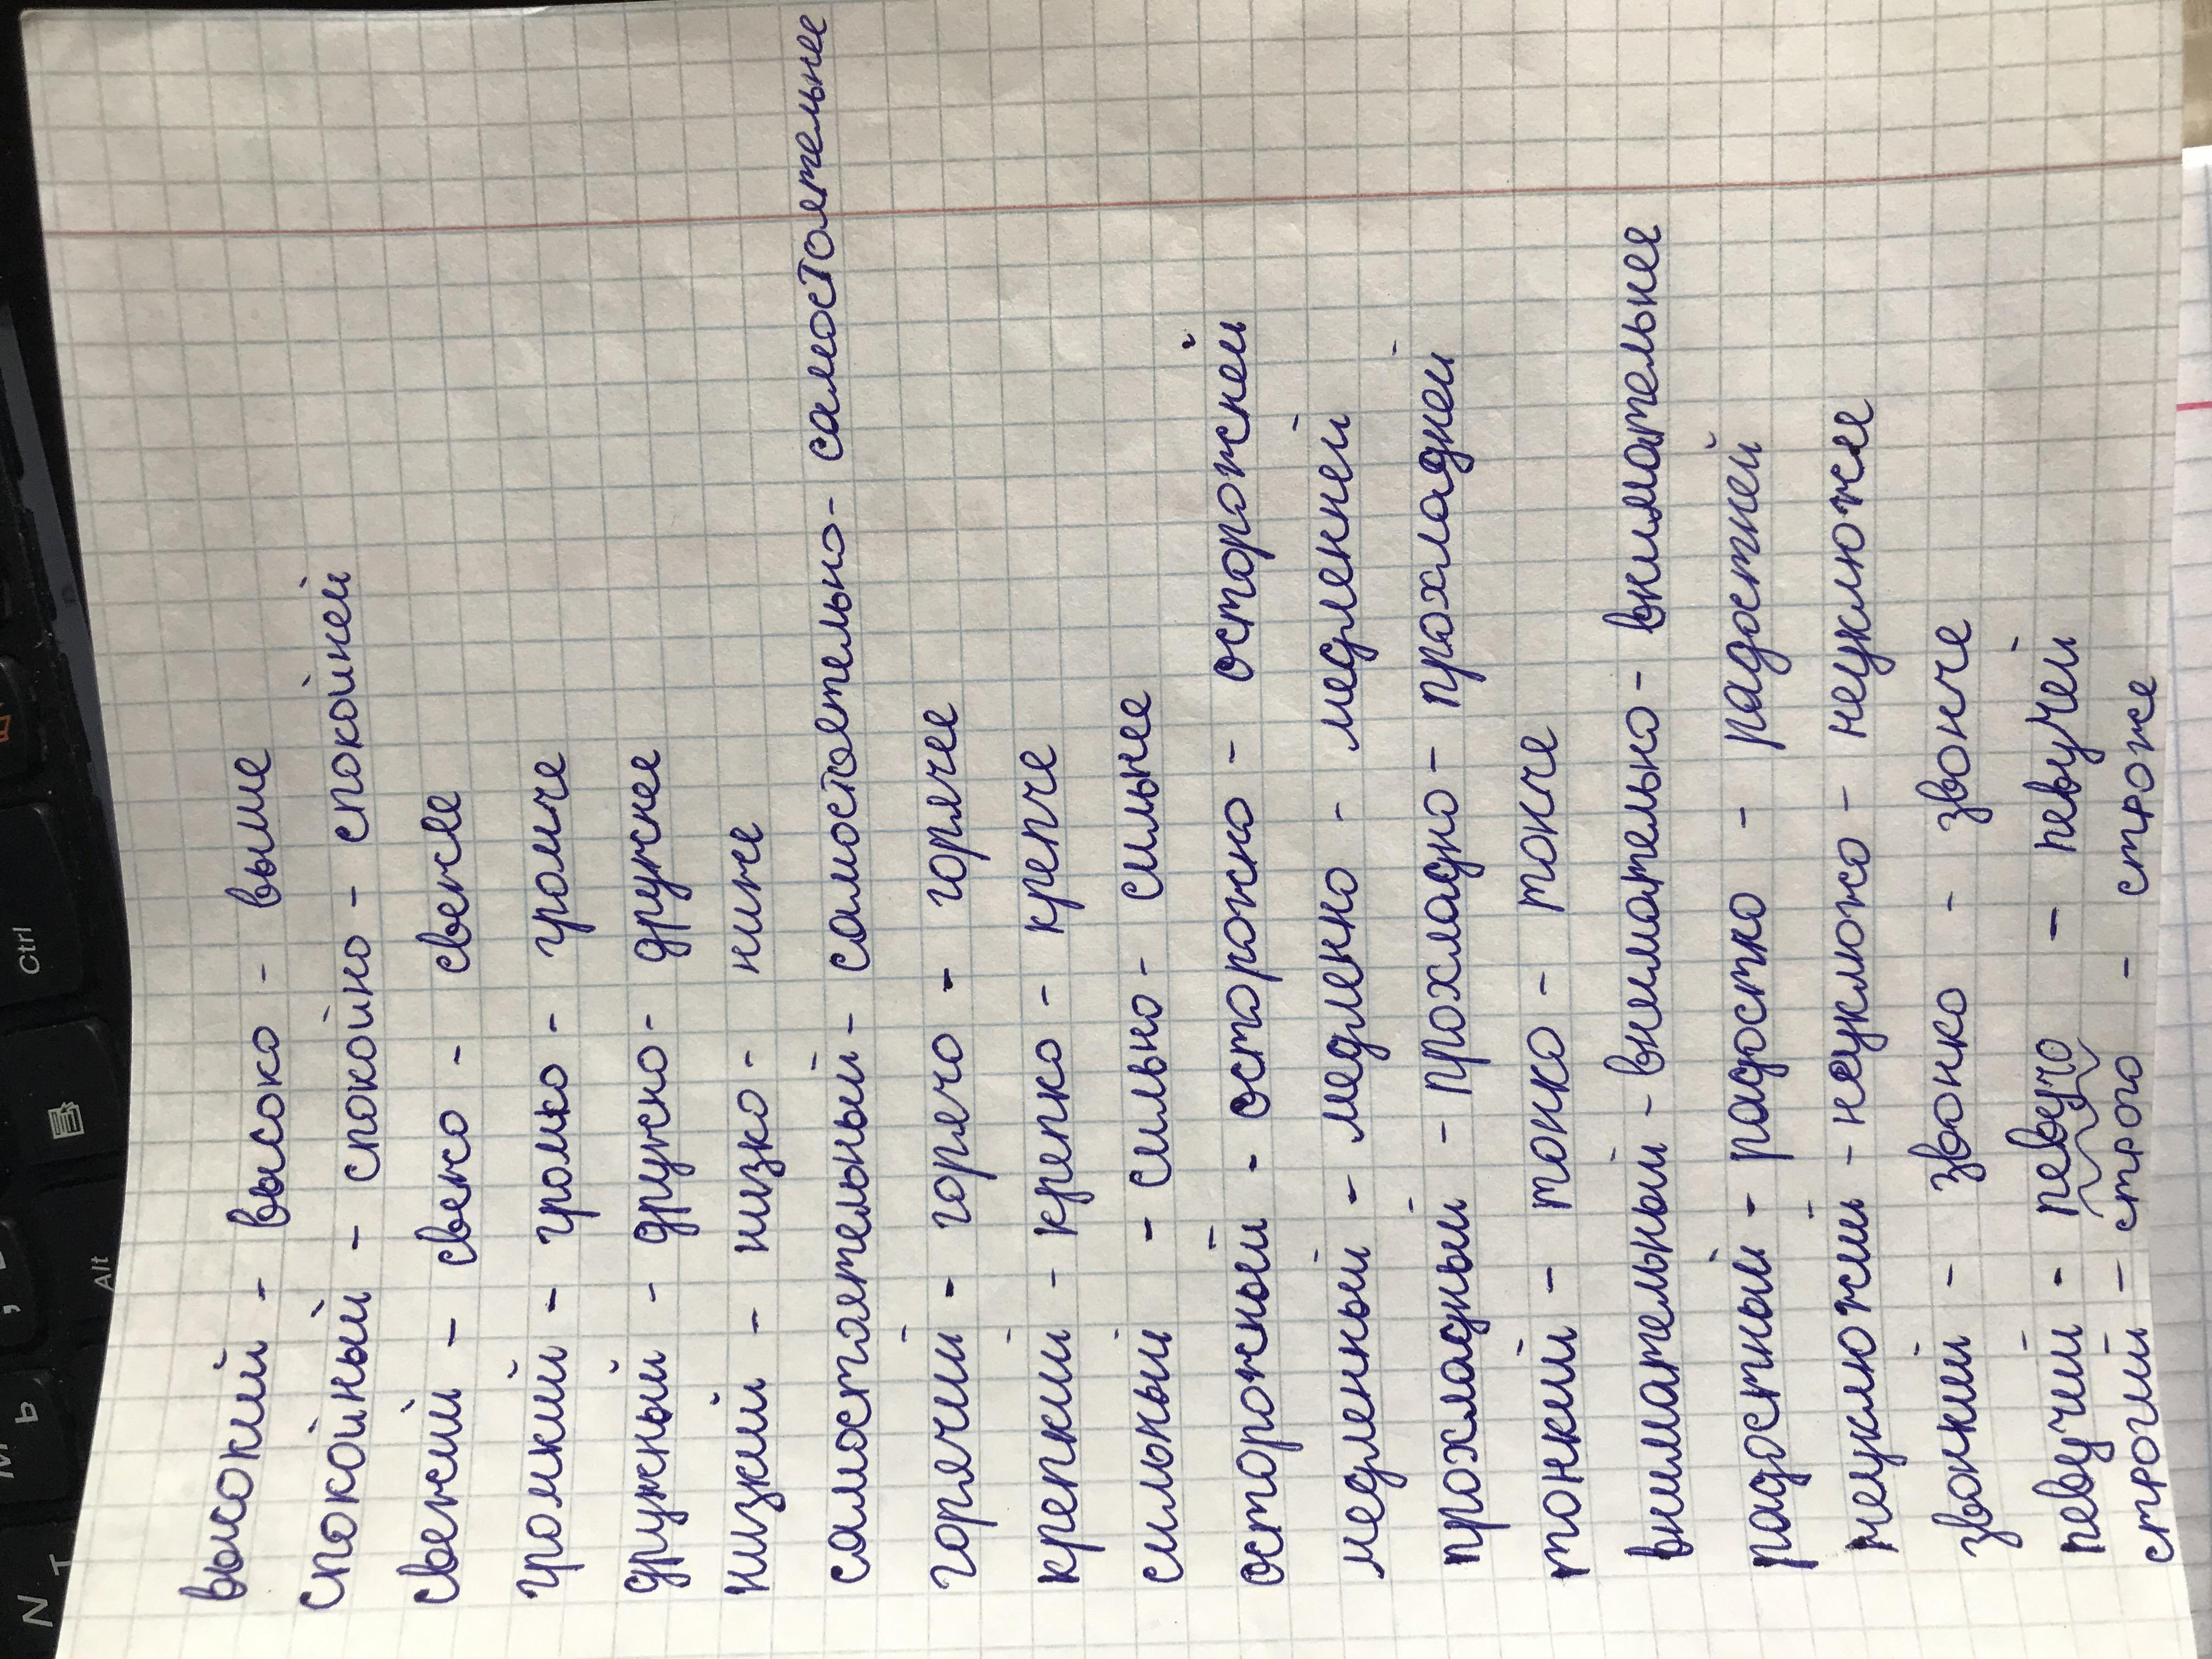 высокий - высоко - выше
спокойный - спокойно - спокойней
свежий - свежо - свежее
громкий - громко - громче
дружный - дружно - дружнее
низкий - низко - ниже
самостоятельный - самостоятельно - самостоятельнее
горячий - горячо - горячее
крепкий - крепко - крепче
сильный - сильно - сильнее
осторожный - осторожно - осторожней
медленный - медленно - медленней
прохладный - прохладно - прохладней
тонкий - тонко - тонче
внимательный - внимательно - внимательнее
радостный - радостно - радостней
неуклюжий - неуклюжо - неуклюжее
звонкий - звонко - звонче
певучий - певучо - певучей
строгий - строго - строже
Ctrl
Alt
N
Т
Ь